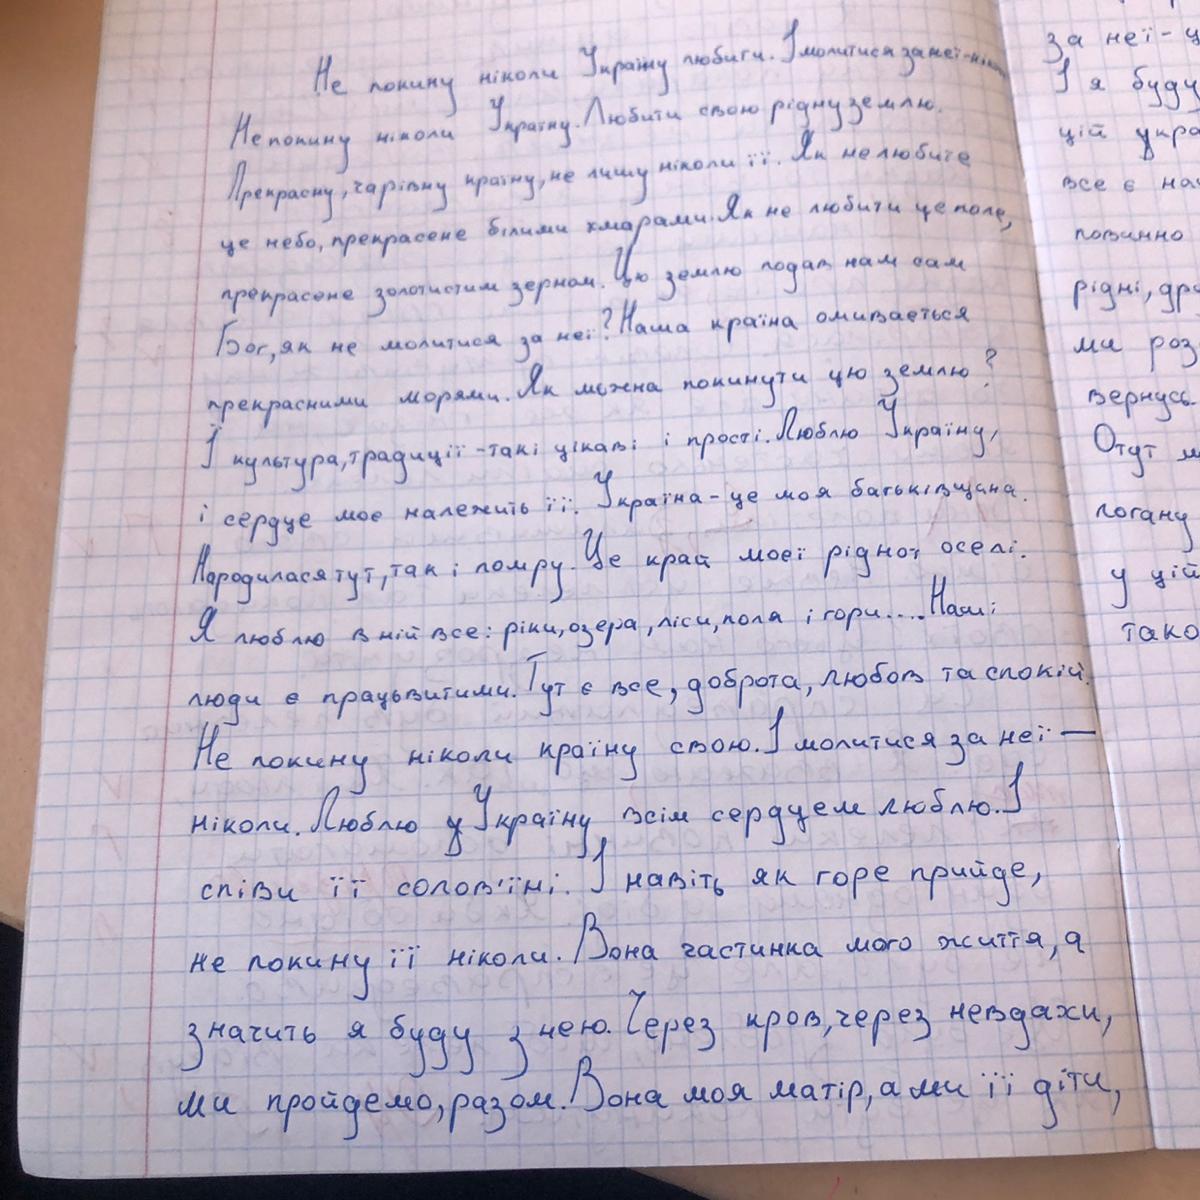 Не покину ніколи Україну любити. І молитися за неї-ніколи
Не покину ніколи Україну. Любити свою рідну землю.
Прекрасну, чарівну країну, не лишу ніколи її. Як не любите
це небо, прекрасене білими хмарами. Як не любити це поле,
прекрасене золотистим зерном. Цю землю подав нам сам
Бог, як не молитися за неї? Наша країна омивається
прекрасними морями. Як можна покинути цю землю?
Ї культура, традиції - такі цікаві і прості. Люблю Україну,
і сердце моє належить її. Україна - це моя батьківщана.
Народилася тут, так і помру. Це край моєї рідної оселі.
Я люблю в ній все: ріки, озера, ліси, поля і гори.... Наші
люди є працьвитими. Тут є все, доброта, любов та спокій.
Не покину ніколи країну свою. І молитися за неї —
ніколи. Люблю у Україну всім сердцем люблю. І
співи її солов'їні. І навіть як горе прийде,
не покину її ніколи. Вона частинка мого життя, а
значить я буду з нею. Через кров, через невдахи,
ми пройдемо, разом. Вона моя матір, а ми її діти,
за неї - ц
І я буду
цій укра
все є на
повинно
рідні, др
ми роз
вернусь.
Отут м
погану
у цій
тако